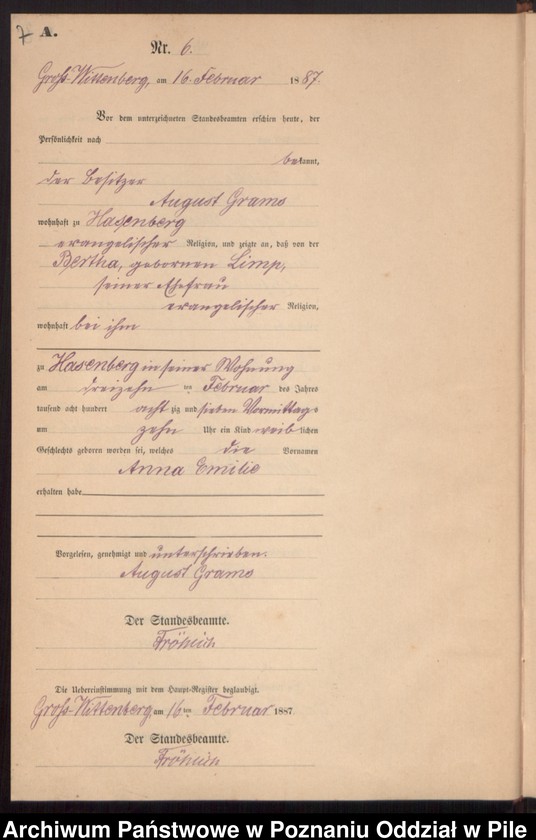 7 A.
Nr. 6.
Groß-Wittenberg, am 16. Februar 1887.
Vor dem unterzeichneten Standesbeamten erschien heute, der
Persönlichkeit nach
bekannt,
der Besitzer
August Grams
wohnhaft zu Hasenberg
evangelischer Religion, und zeigte an, daß von der
Bertha, gebornen Limp,
seiner Ehefrau
evangelischer Religion,
wohnhaft bei ihm
zu Hasenberg in seiner Wohnung
am dreizehn ten Februar des Jahres
tausend acht hundert achtzig und sieben Vormittags
um zehn Uhr ein Kind weiblichen
Geschlechts geboren worden sei, welches die Vornamen
Anna Emilie
erhalten habe
Vorgelesen, genehmigt und unterschrieben.
August Grams
Der Standesbeamte.
Fröhlich
Die Uebereinstimmung mit dem Haupt-Register beglaubigt.
Groß-Wittenberg, am 16ten Februar 1887
Der Standesbeamte.
Fröhlich
Archiwum Państwowe w Poznaniu Oddział w Pile